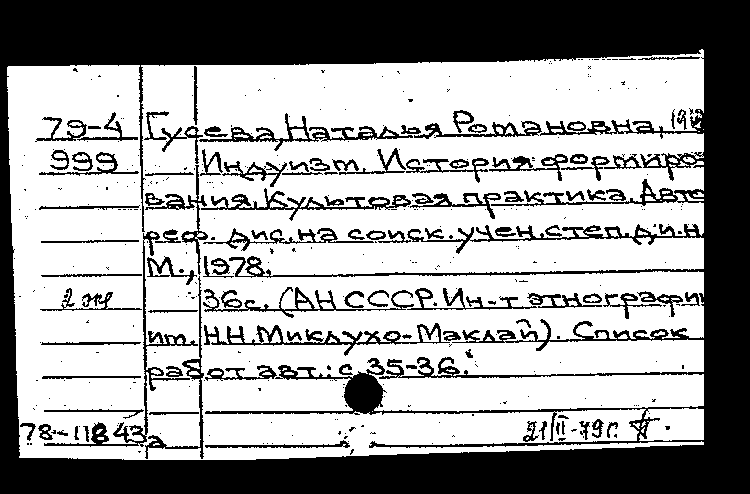 79-4 Гусева, Наталья Романовна,
999 Индуизм. История формиров
вания. Культовая практика. Авто
реф. дис. на соиск. учен. степ. д.и.н.
М., 1978.
2 экз 36с. (АН СССР. Ин-т этнографии
им. Н.Н. Миклухо-Маклай). Список
работ авт.: с. 35-36.
78-11843а 21/II-79г.